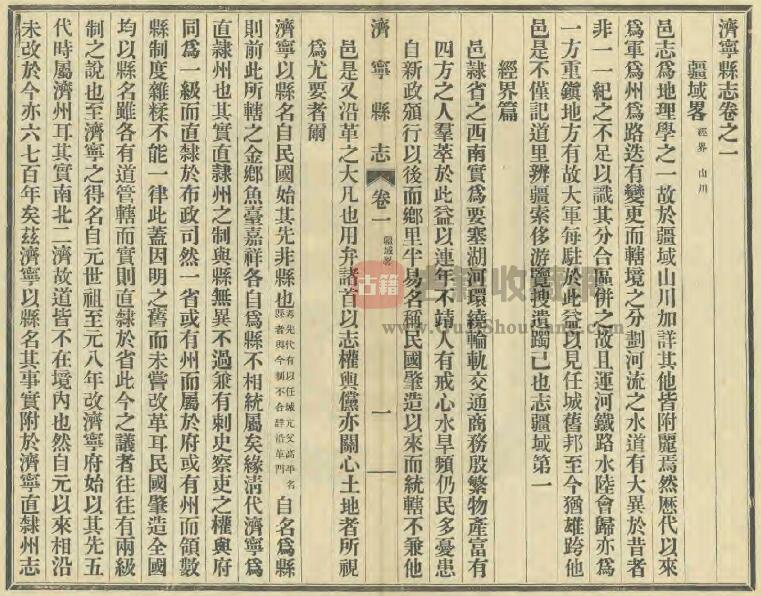 濟寧縣志卷之一
疆域畧 經界 山川
邑志爲地理學之一故於疆域山川加詳其他皆附麗焉然歷代以來
爲軍爲州爲路迭有變更而轄境之分劃河流之水道有大異於昔者
非一一紀之不足以識其分合區併之故且運河鐵路水陸會歸亦爲
一方重鎭地方有故大軍每駐於此益以見任城舊邦至今猶雄跨他
邑是不僅記道里辨疆索侈游覽搜遺躅已也志疆域第一
經界篇
邑隸省之西南實爲要塞湖河環繞輪軌交通商務殷繁物產富有
四方之人羣萃於此益以連年不靖人有戒心水旱頻仍民多憂患
自新政頒行以後而鄉里半易名稱民國肇造以來而統轄不兼他
濟寧縣志 卷一 疆域畧 一
邑是又沿革之大凡也用弁諸首以志權輿儻亦關心土地者所視
爲尤要者爾
濟寧以縣名自民國始其先非縣也 自名爲縣
則前此所轄之金鄉魚臺嘉祥各自爲縣不相統屬矣緣淸代濟寧爲
直隸州也其實直隸州之制與縣無異不過兼有刺史察吏之權與府
同爲一級而直隸於布政司然一省或有州而屬於府或有州而領數
縣制度雜糅不能一律此蓋因明之舊而未嘗改革耳民國肇造全國
均以縣名雖各有道管轄而實則直隸於省此今之議者往往有兩級
制之說也至濟寧之得名自元世祖至元八年改濟寧府始以其先五
代時屬濟州耳其實南北二濟故道皆不在境內也然自元以來相沿
未改於今亦六七百年矣茲濟寧以縣名其事實附於濟寧直隸州志
古籍